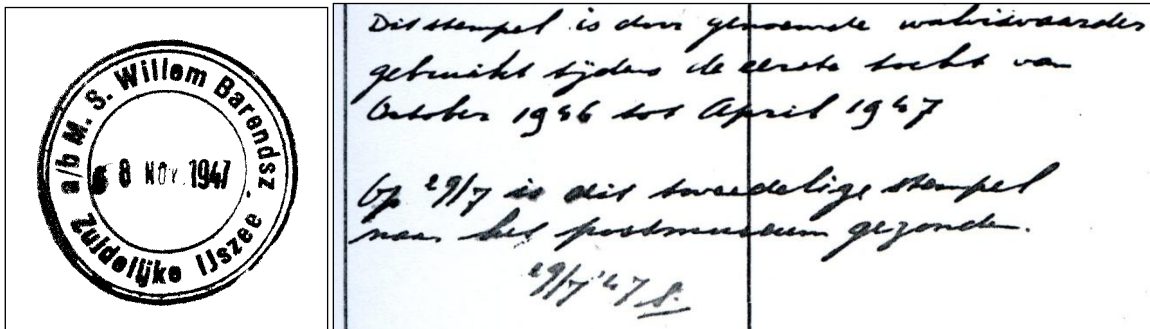 a/b M. S. Willem Barendsz.
8 NOV. 1947
Zuidelijke IJszee
Dit stempel is door genoemde walvisvaarder
gebruikt tijdens de eerste tocht van
October 1946 tot April 1947
Op 29/7 is dit tweedelige stempel
naar het postmuseum gezonden.
29/7 '47 S.